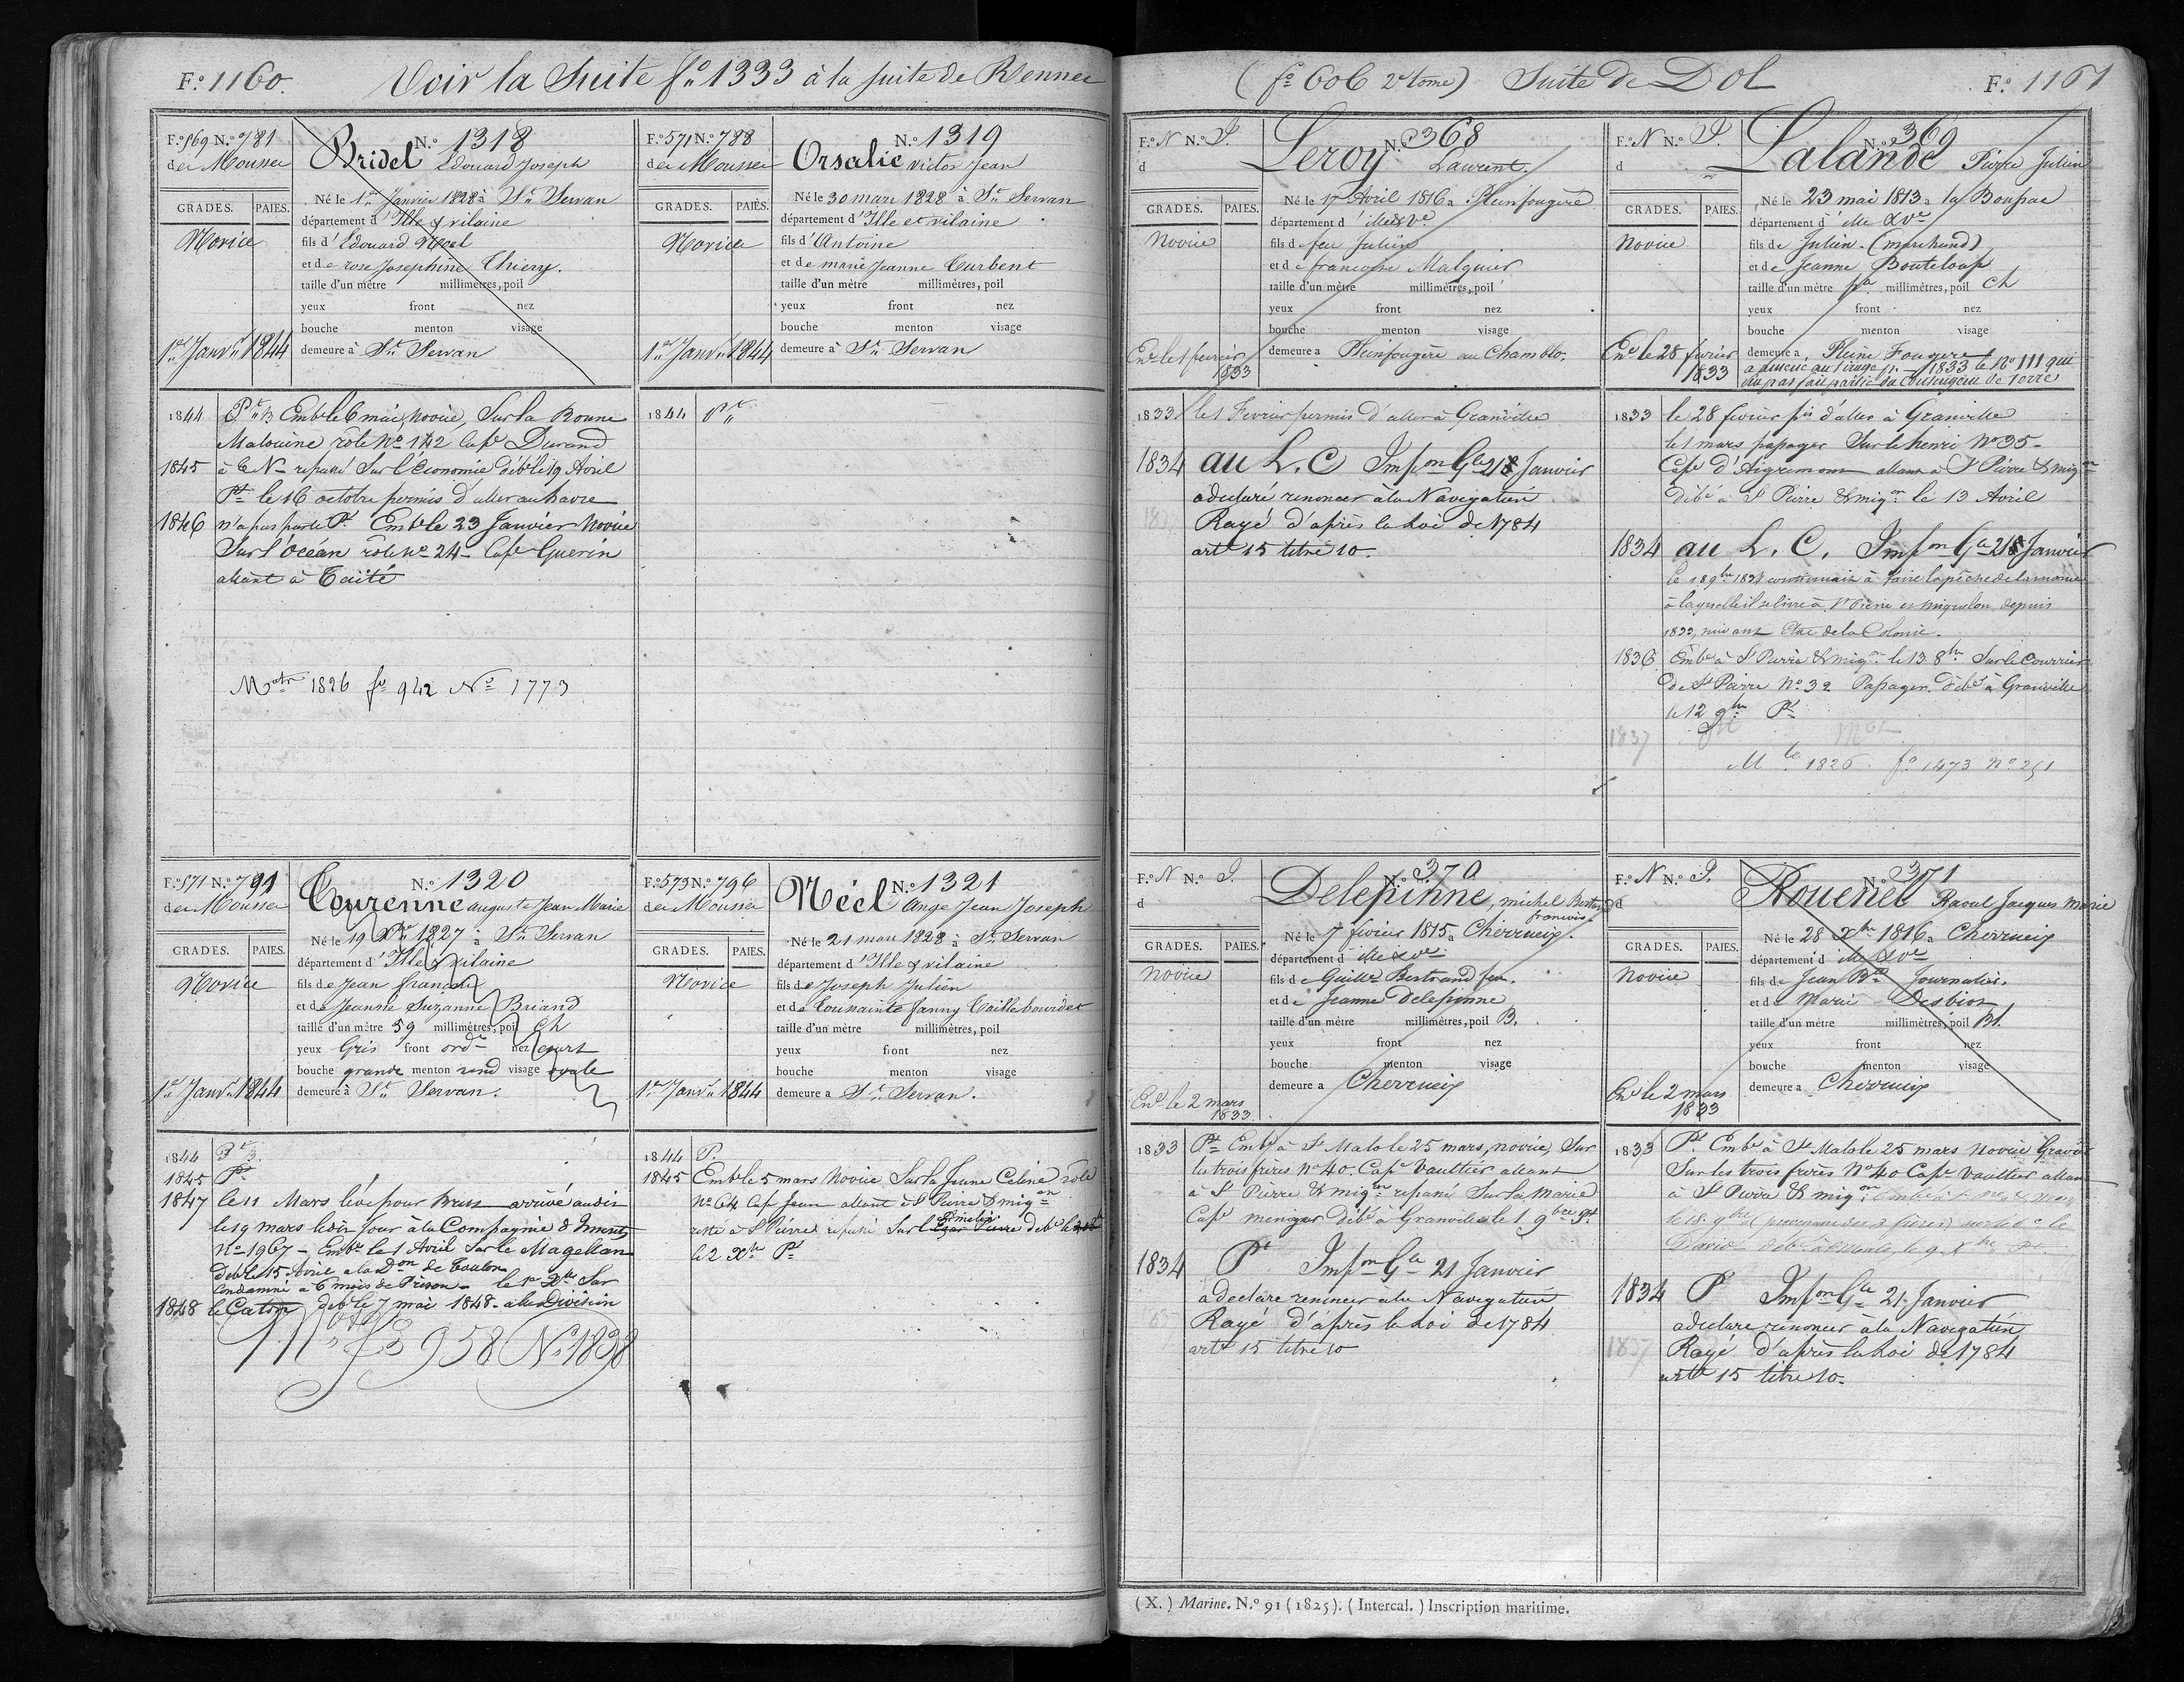 F.º 1160. Voir la Suite fº 1333 à la suite de Rennes
F.º 569 N.º 781
des Mousses
N.º 1318
Bridel Edouard Joseph
GRADES. PAIES.
Novice
1er Janvr 1844
Né le 1er Janvier 1828 à St Servan
département d'Ille & vilaine
fils d'Edouard Noel
et de rose Josephine Thiery.
taille d'un mètre millimètres, poil
yeux front nez
bouche menton visage
demeure à St Servan
1844 Pt 3. Embé le 6 mai, novice, Sur la Bonne
Malouine rôle Nº 142 Cape Durand
1845 à T N repassé Sur l'Économie débé le 19 Avril
Pt le 16 octobre permis d'aller au havre
1846 n'a pas parti Pt Embé le 23 Janvier Novice
Sur l'Océan rôle Nº 24 Cape Guerin
allant à Taïti
Matle 1826 fº 942 Nº 1773
F.º 571 N.º 788
des Mousses
N.º 1319
Orsalic Victor Jean
GRADES. PAIES.
Novice
1er Janvr 1844
Né le 30 mars 1828 à St Servan
département d'Ille et vilaine
fils d'Antoine
et de marie Jeanne Turbent
taille d'un mètre millimètres, poil
yeux front nez
bouche menton visage
demeure à St Servan
1844 Pt
F.º 571 N.º 791
des Mousses
N.º 1320
Tourenne auguste Jean Marie
GRADES. PAIES.
Novice
1er Janvr 1844
Né le 19 Xbre 1827 à St Servan
département d'Ille & vilaine
fils de Jean françois
et de Jeanne Suzanne Briand
taille d'un mètre 59 millimètres, poil Ch
yeux Gris front ordre nez court
bouche grande menton rond visage ovale
demeure à St Servan.
1844 Pt 3.
1845 Pt
1847 le 11 Mars levé pour Brest arrivé audit
le 19 mars le dit Jour à la Compagnie d
Nº 1967 - Embé le 1 Avril Sur le Magellan
Débé le 15 Avril a la don de Toulon
Condamné à 6 mois de Prison - le 1er Xbre Sur
1848 le Caton débé le 7 mai 1848 - a la Division
Matle fº 958 Nº 1838
F.º 573 N.º 796
des Mousses
N.º 1321
Néel Ange Jean Joseph
GRADES. PAIES.
Novice
1er Janvr 1844
Né le 21 mars 1828 à St Servan
département d'Ille & vilaine
fils de Joseph Julien
et de Toussainte fanny Taillebourdet
taille d'un mètre millimètres, poil
yeux front nez
bouche menton visage
demeure à St Servan.
1844 P.
1845 Embé le 5 mars Novice Sur la Jeune Celina rôle
Nº 64 Cape Jean allant à St Pierre & miqon
resté à St Pierre repassé Sur l'Amélie débé le
le 2 Xbre Pt
(fº 606 2e tome) Suite de Dol F.º 1161
F.º N N.º S.
d
N.º 368
Leroy Laurent.
GRADES. PAIES.
Novice
Enré le 1 fevrier
1833
Né le 17 Avril 1816 à Pleinfougère
département d'ille & Ve
fils de feu Julien
et de francoise Malquier
taille d'un mètre millimètres, poil
yeux front nez
bouche menton visage
demeure a Pleinfougère au Chamblo.
1833 le 1 Fevrier permis d'aller à Granville
1834 au L. C Impon Gle 21 Janvier
a declaré renoncer à la Navigation
Rayé d'après la Loi de 1784
art 15 titre 10
F.º N N.º S.
d
N.º 369
Lalande Pierre Julien
GRADES. PAIES.
Novice
Enré le 28 fevrier
1833
Né le 23 mai 1813 à la Boussac
département d'ille & Ve
fils de Julien. (marchand)
et de Jeanne Bouteloup
taille d'un mètre millimètres, poil Ch
yeux front nez
bouche menton visage
demeure a Pleine Fougere
a amené au tirage 1833 le Nº 111 qui
n'a pas fait partie du Contingent de terre
1833 le 28 fevrier pis d'aller à Granville
le 1 mars passager Sur le henri Nº 35
Cape d'Aigremont allant à St Pierre & miqon
Débé à St Pierre & miqon le 13 Avril
1834 au L. C. Impon Gle 21 Janvier
le 18 9bre 1834 continuait à faire la pêche de la morue
à laquelle il se livre à St Pierre et miquelon depuis
1833, suivant Etat de la Colonie.
1836 Embé à St Pierre & miqon le 13 8bre Sur le Courrier
de St Pierre Nº 32 Passager. débé à Granville
le 12 9bre Pt
1837
Mle 1826. fº 1473 Nº 251
F.º N N.º S.
d
N.º 370
Delepinne, michel Bertrand
francois
GRADES. PAIES.
Novice
Enré le 2 mars
1833
Né le 7 fevrier 1815 à Cherrueix.
département d ille & Ve
fils de Guille Bertrand feu.
et de Jeanne Delepinne
taille d'un mètre millimètres, poil B.
yeux front nez
bouche menton visage
demeure a Cherrueix
1833 Pt Embé à St Malo le 25 mars, novice, Sur
les trois frères Nº 40. Cape Vaultier allant
à St Pierre & miqon repassé Sur la Marie
Cape meniger débé à Granville le 1. 9bre Pt
1834 Pt Impon Gle 21 Janvier
a declare renoncer a la Navigation
Rayé d'après la Loi de 1784
art 15 titre 10
F.º N N.º S.
d
N.º 371
Rouenel Raoul Jacques Marie
GRADES. PAIES.
Novice
Enré le 2 mars
1833
Né le 28 Xbre 1816 à Cherrueix
département d ille & Ve
fils de Jean Bte Journalier.
et de Marie Desbios
taille d'un mètre millimètres, poil Bl.
yeux front nez
bouche menton visage
demeure a Cherrueix
1833 Pt Embé à St Malo le 25 mars Novice Gravier
Sur les trois frères Nº 40 Cape Vaultier allant
à St Pierre & miqon
le 18. 9bre (provenant des 3 frères) sur le
David débé à le 9 Xbre Pt
1834 P Impon Gle 21 Janvier
a declare renoncer à la Navigation
1837 Rayé d'après la Loi de 1784
art 15 titre 10.
(X.) Marine. N.º 91 (1825). (Intercal.) Inscription maritime.